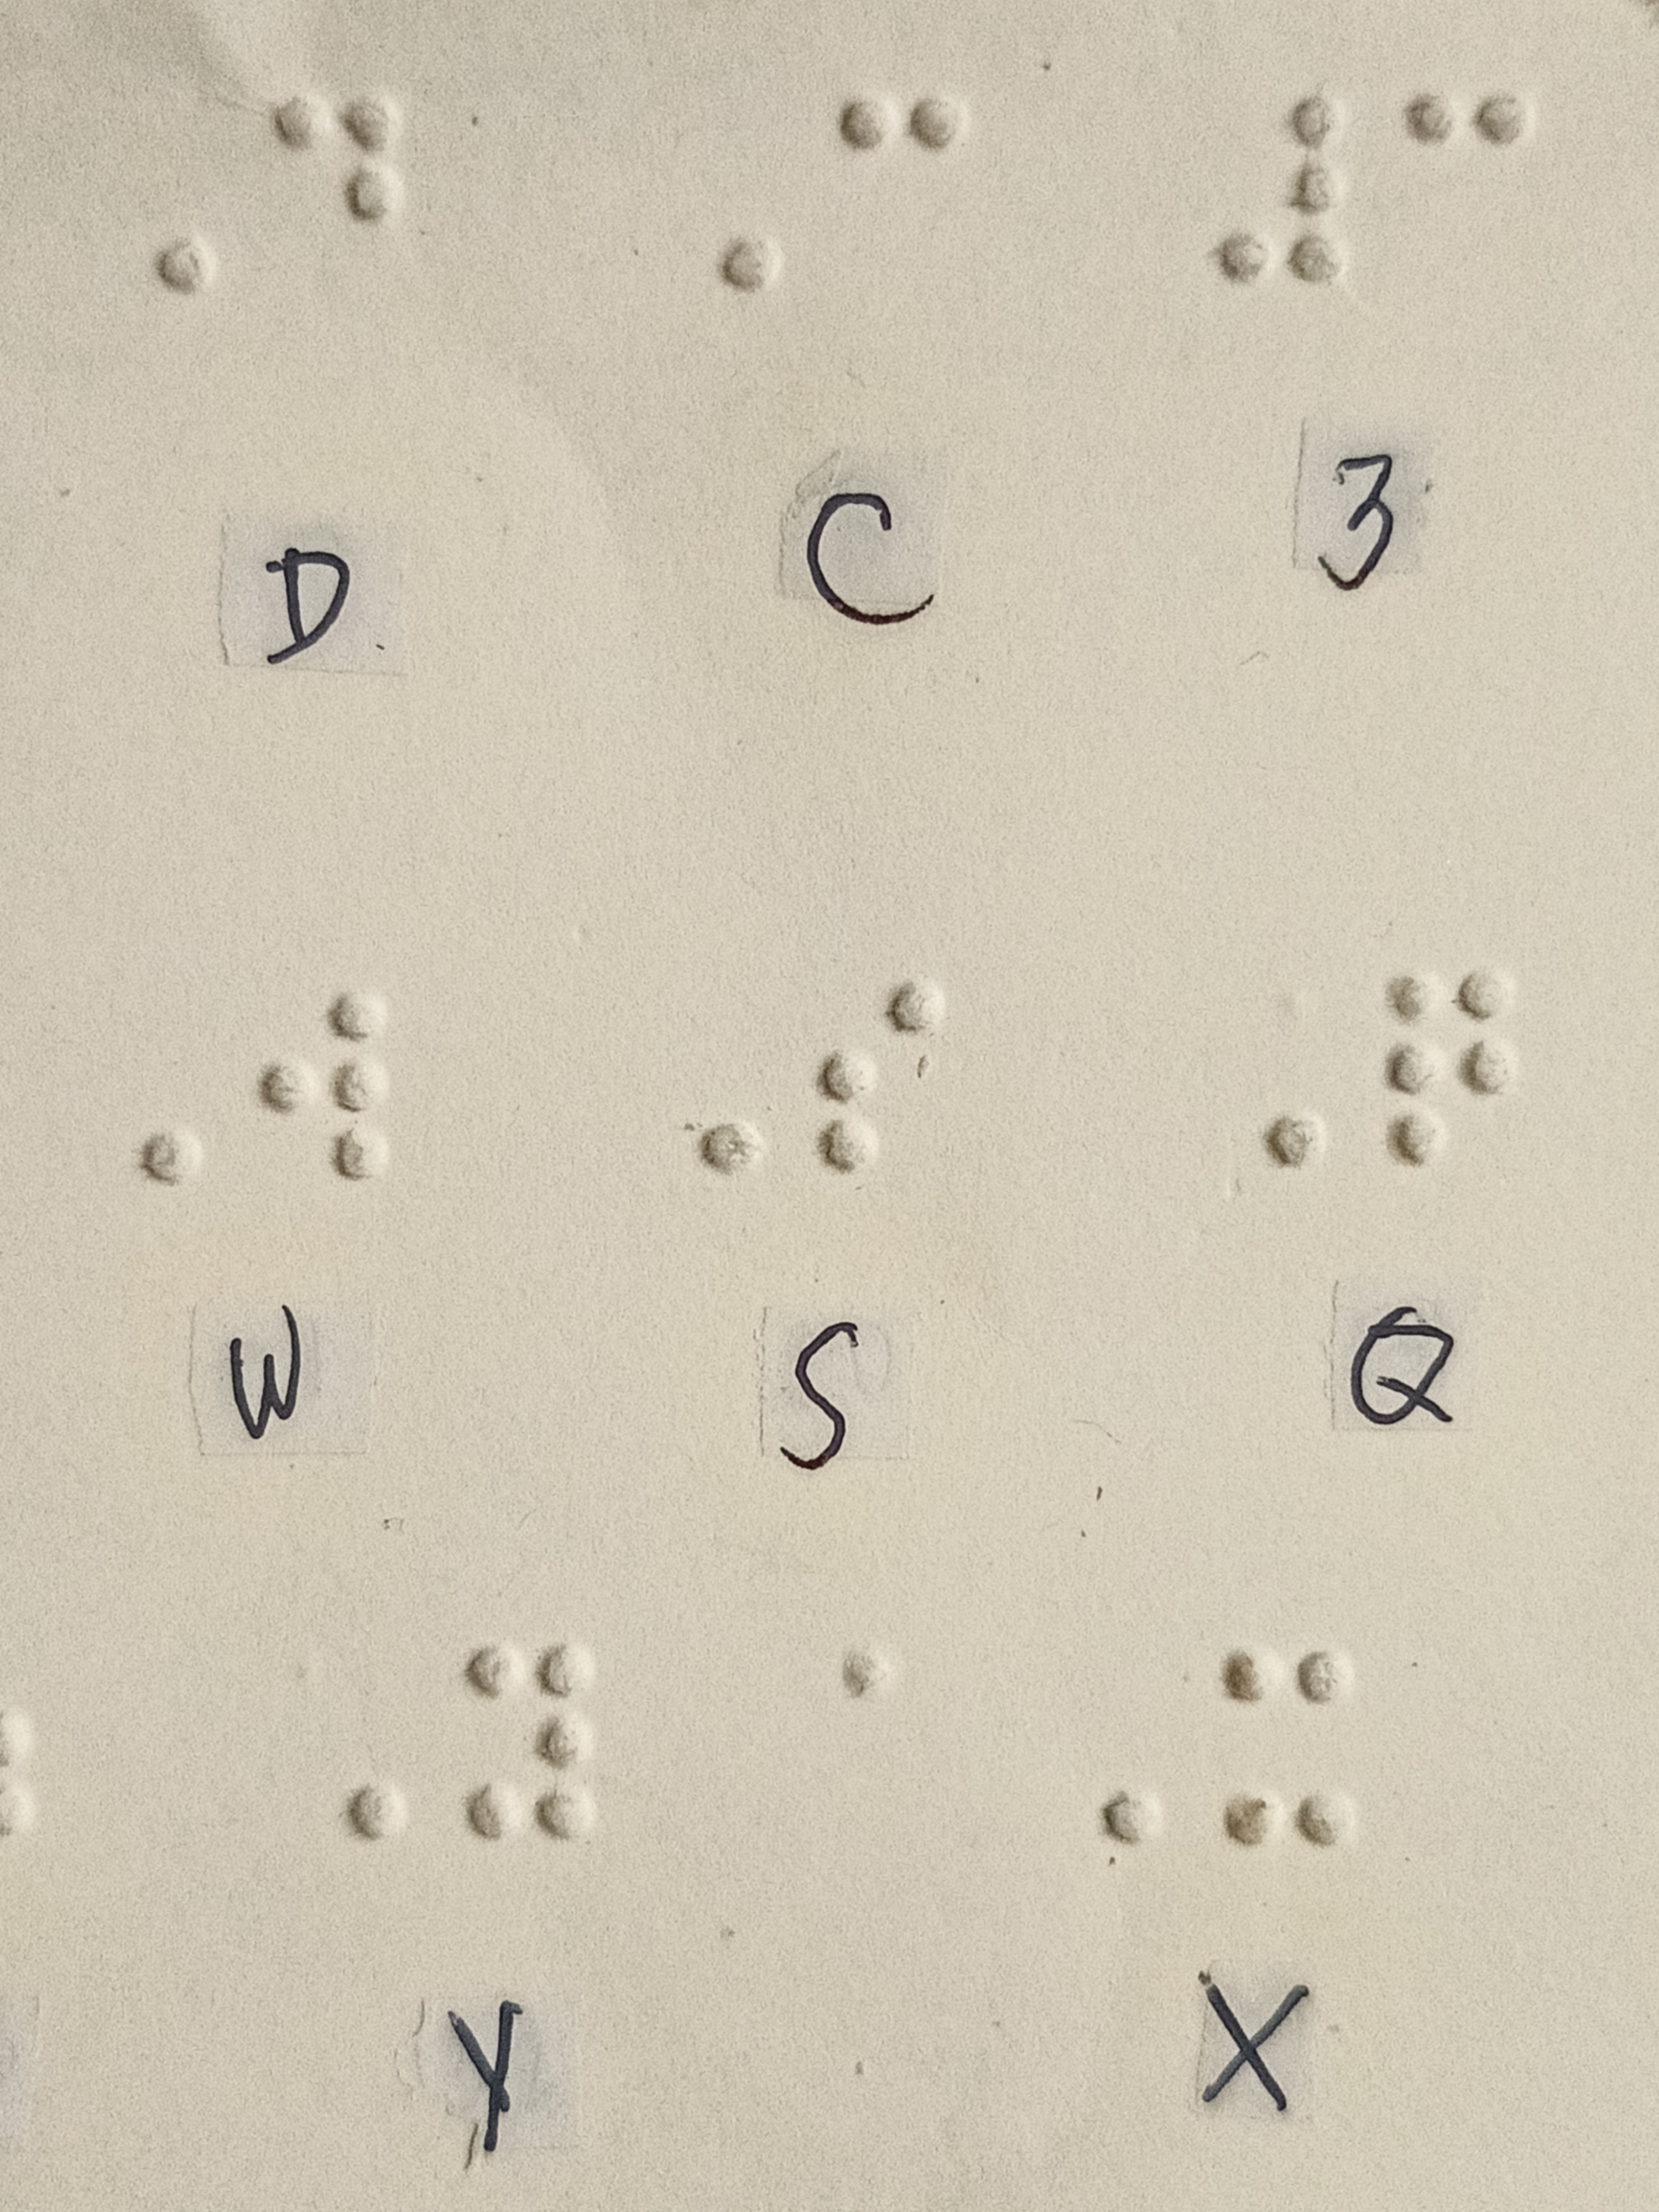 ⠠⠙ ⠠⠉ ⠼⠉
D C 3
⠠⠺ ⠠⠎ ⠠⠟
W S Q
⠠⠽ ⠁ ⠠⠭
Y X